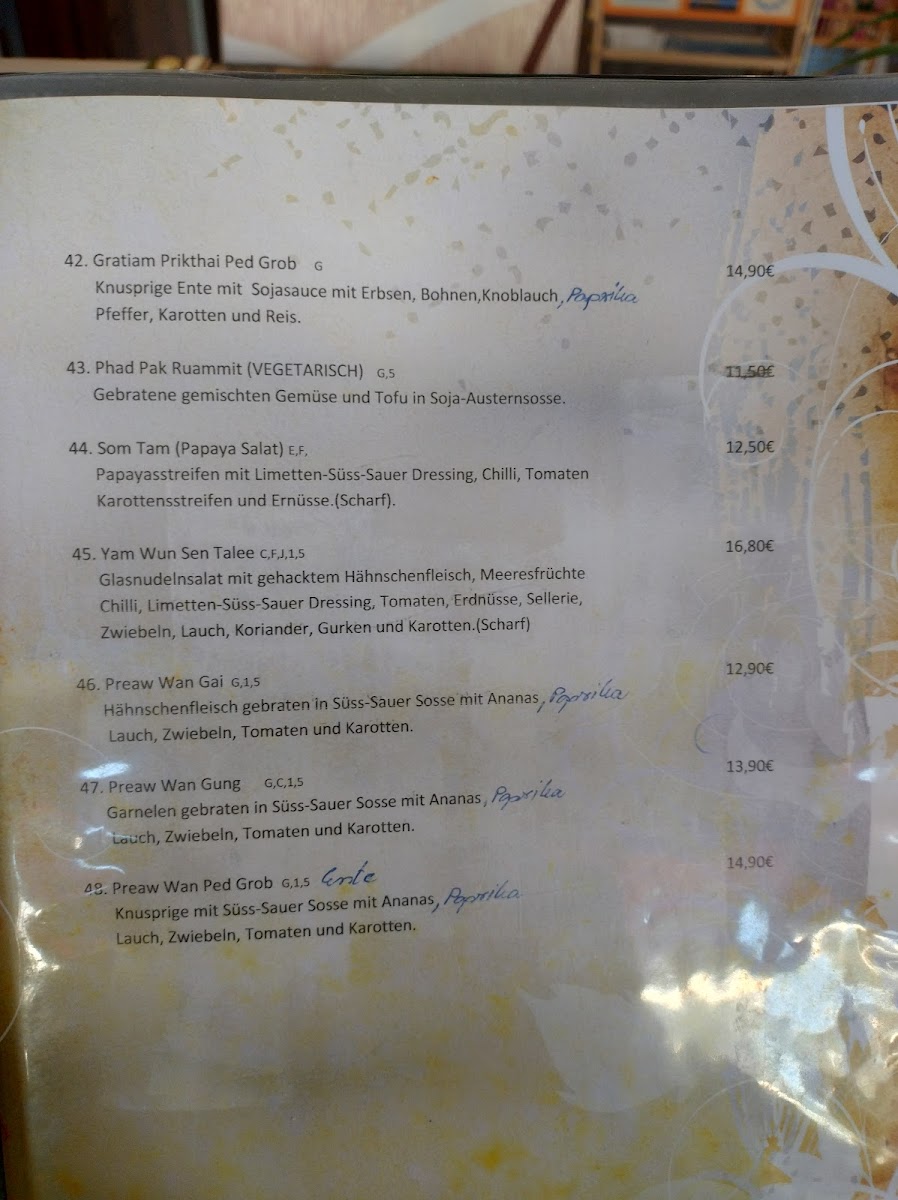 42. Gratiam Prikthai Ped Grob G 14,90€
Knusprige Ente mit Sojasauce mit Erbsen, Bohnen,Knoblauch, Paprika
Pfeffer, Karotten und Reis.
43. Phad Pak Ruammit (VEGETARISCH) G,5 11,50€
Gebratene gemischten Gemüse und Tofu in Soja-Austernsosse.
44. Som Tam (Papaya Salat) E,F, 12,50€
Papayasstreifen mit Limetten-Süss-Sauer Dressing, Chilli, Tomaten
Karottensstreifen und Ernüsse.(Scharf).
45. Yam Wun Sen Talee C,F,J,1,5 16,80€
Glasnudelnsalat mit gehacktem Hähnschenfleisch, Meeresfrüchte
Chilli, Limetten-Süss-Sauer Dressing, Tomaten, Erdnüsse, Sellerie,
Zwiebeln, Lauch, Koriander, Gurken und Karotten.(Scharf)
46. Preaw Wan Gai G,1,5 12,90€
Hähnschenfleisch gebraten in Süss-Sauer Sosse mit Ananas, Paprika
Lauch, Zwiebeln, Tomaten und Karotten.
47. Preaw Wan Gung G,C,1,5 13,90€
Garnelen gebraten in Süss-Sauer Sosse mit Ananas, Paprika
Lauch, Zwiebeln, Tomaten und Karotten.
48. Preaw Wan Ped Grob G,1,5 Ente 14,90€
Knusprige mit Süss-Sauer Sosse mit Ananas, Paprika
Lauch, Zwiebeln, Tomaten und Karotten.